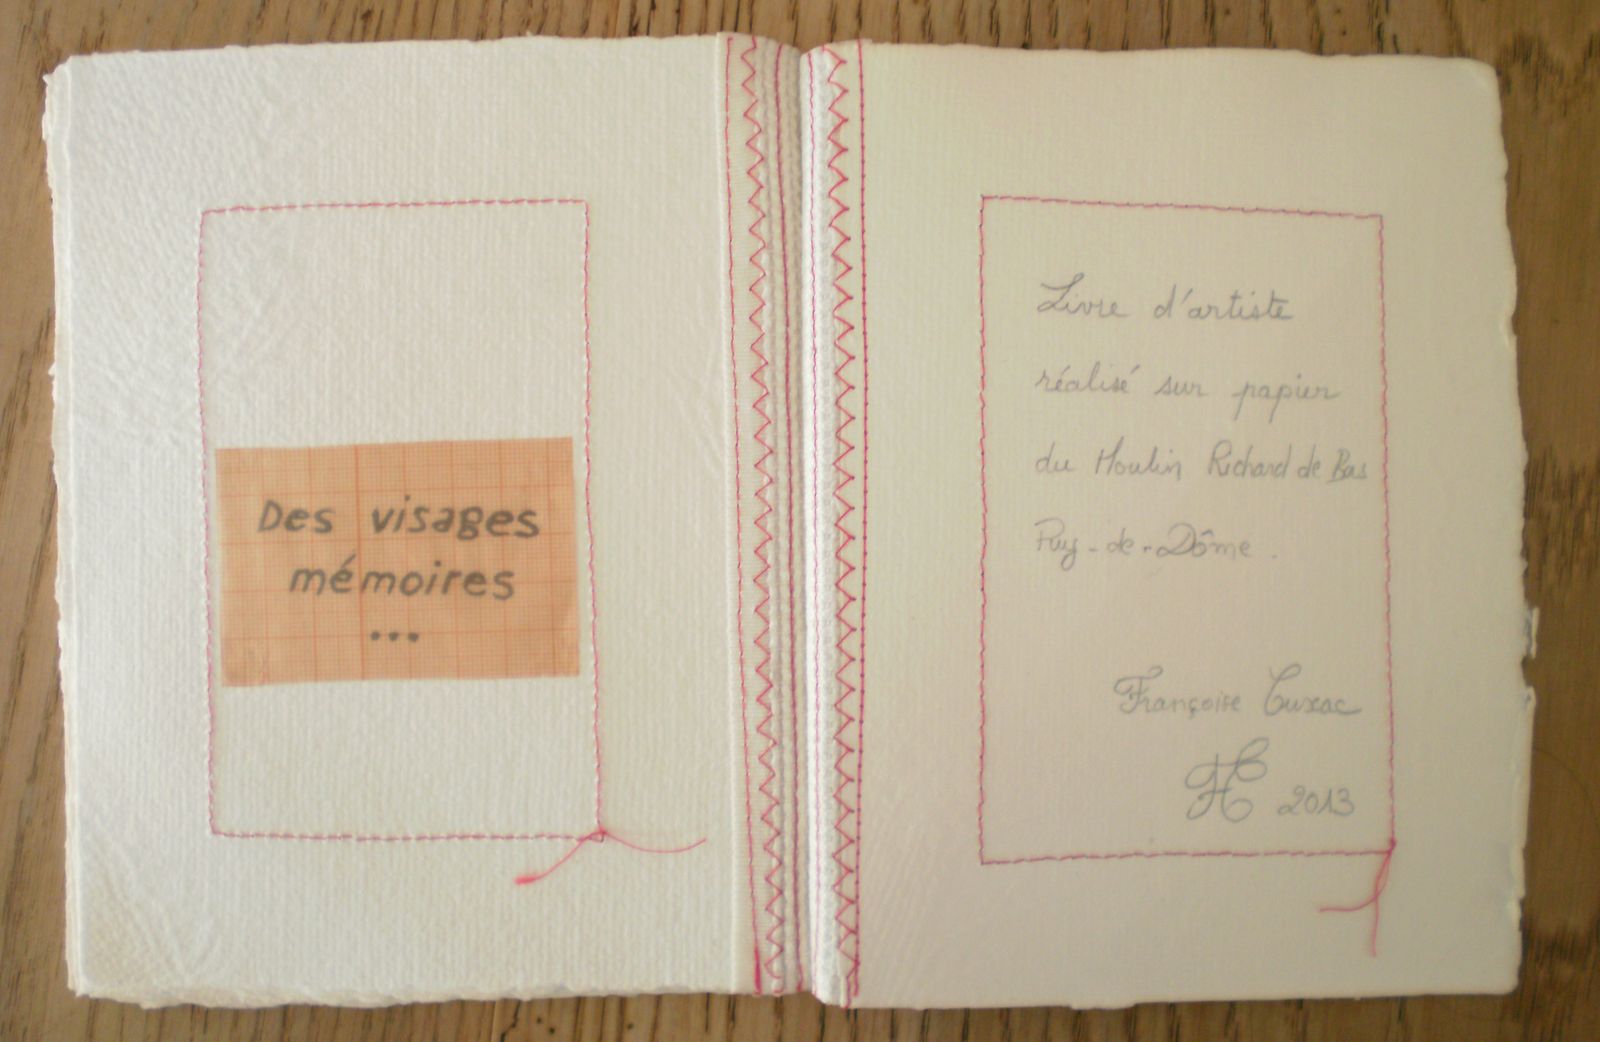 Des visages
mémoires
...
Livre d'artiste
réalisé sur papier
du Moulin Richard de Bas
Puy-de-Dôme.
Françoise Cuxac
FC 2013